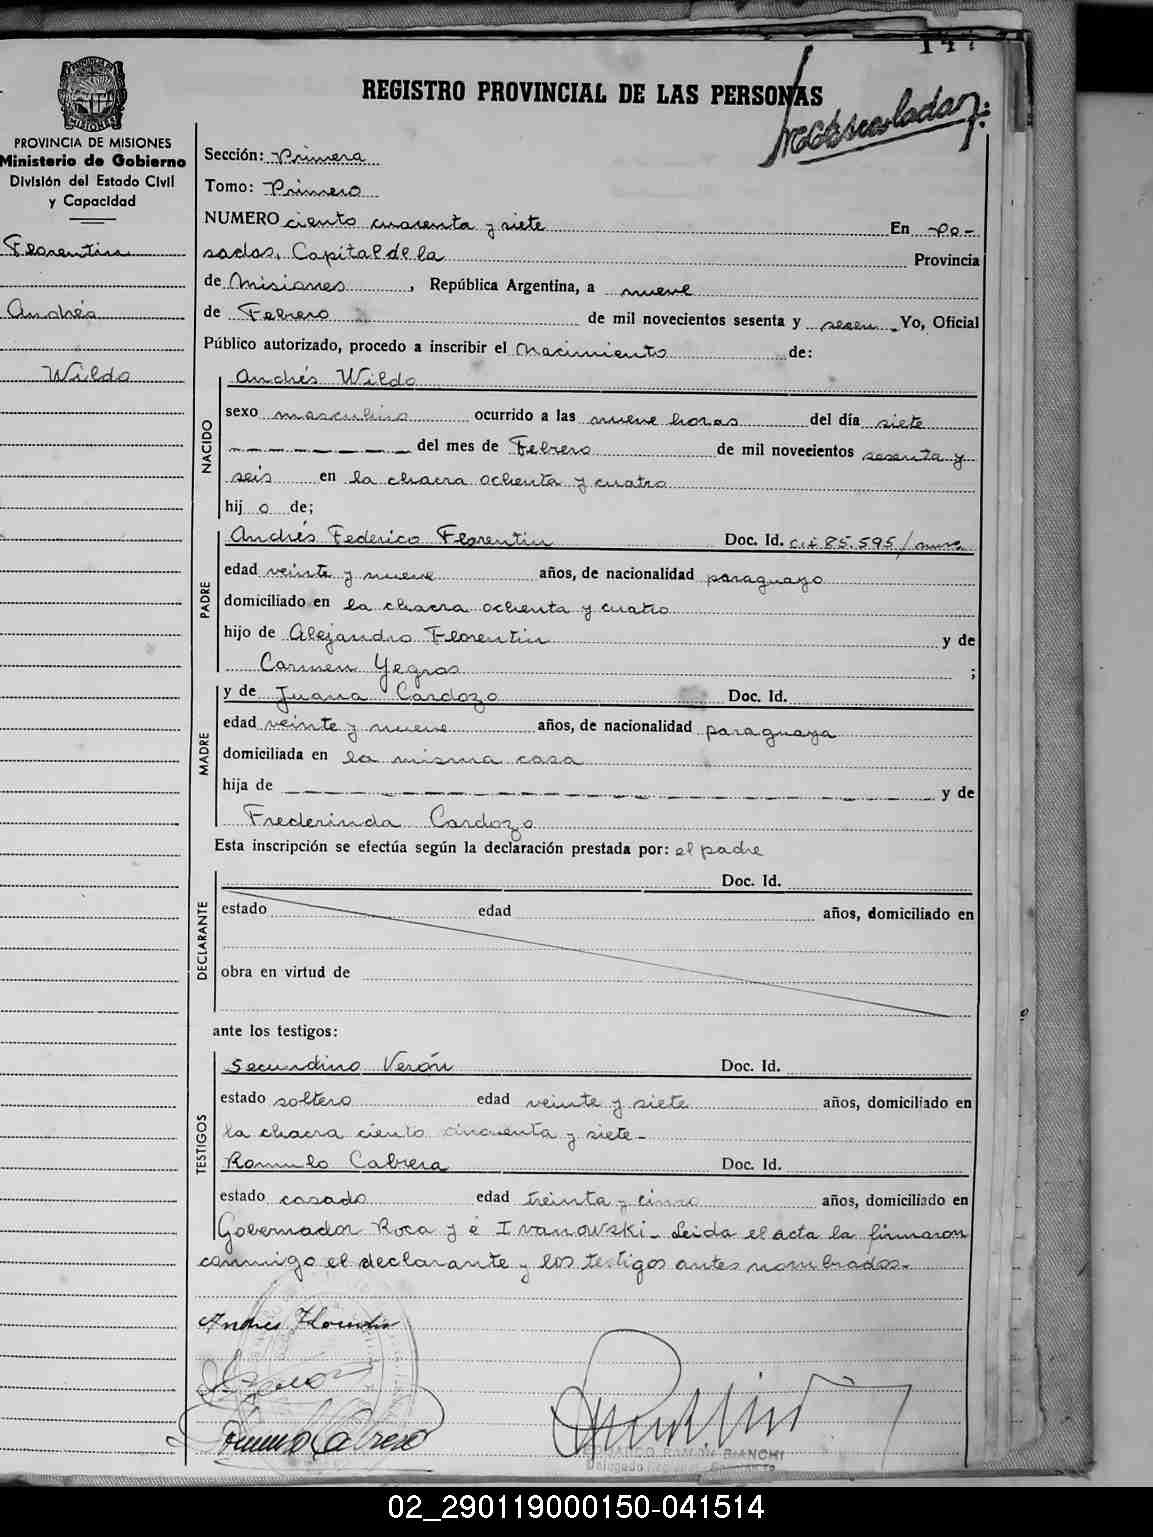 147
REGISTRO PROVINCIAL DE LAS PERSONAS
MISIONES
PROVINCIA DE MISIONES
Ministerio de Gobierno
División del Estado Civil
y Capacidad
Florentin
Andrés
Wildo
Sección: Primera
Tomo: Primero
NUMERO ciento cuarenta y siete En Po-
sadas, Capital de la Provincia
de Misiones, República Argentina, a nueve
de Febrero de mil novecientos sesenta y seis. Yo, Oficial
Público autorizado, procedo a inscribir el Nacimiento de:
NACIDO
Andrés Wildo
sexo masculino ocurrido a las nueve horas del día siete
del mes de Febrero de mil novecientos sesenta y
seis en la chacra ochenta y cuatro
hij o de;
PADRE
Andrés Federico Florentin Doc. Id. c.i 85.595/
edad veinte y nueve años, de nacionalidad paraguayo
domiciliado en la chacra ochenta y cuatro
hijo de Alejandro Florentin y de
Carmen Yegros ;
MADRE
y de Juana Cardozo Doc. Id.
edad veinte y nueve años, de nacionalidad paraguaya
domiciliada en la misma casa
hija de y de
Frederinda Cardozo
Esta inscripción se efectúa según la declaración prestada por: el padre
DECLARANTE
Doc. Id.
estado edad años, domiciliado en
obra en virtud de
ante los testigos:
TESTIGOS
Secundino Verón Doc. Id.
estado soltero edad veinte y siete años, domiciliado en
la chacra ciento cincuenta y siete-
Romulo Cabrera Doc. Id.
estado casado edad treinta y cinco años, domiciliado en
Gobernador Roca y é Ivanowski. Leida el acta la firmaron
conmigo el declarante y los testigos antes nombrados.-
Andres Florentin
Romulo Cabrera
EDUARDO RAMON BIANCHI
02_290119000150-041514